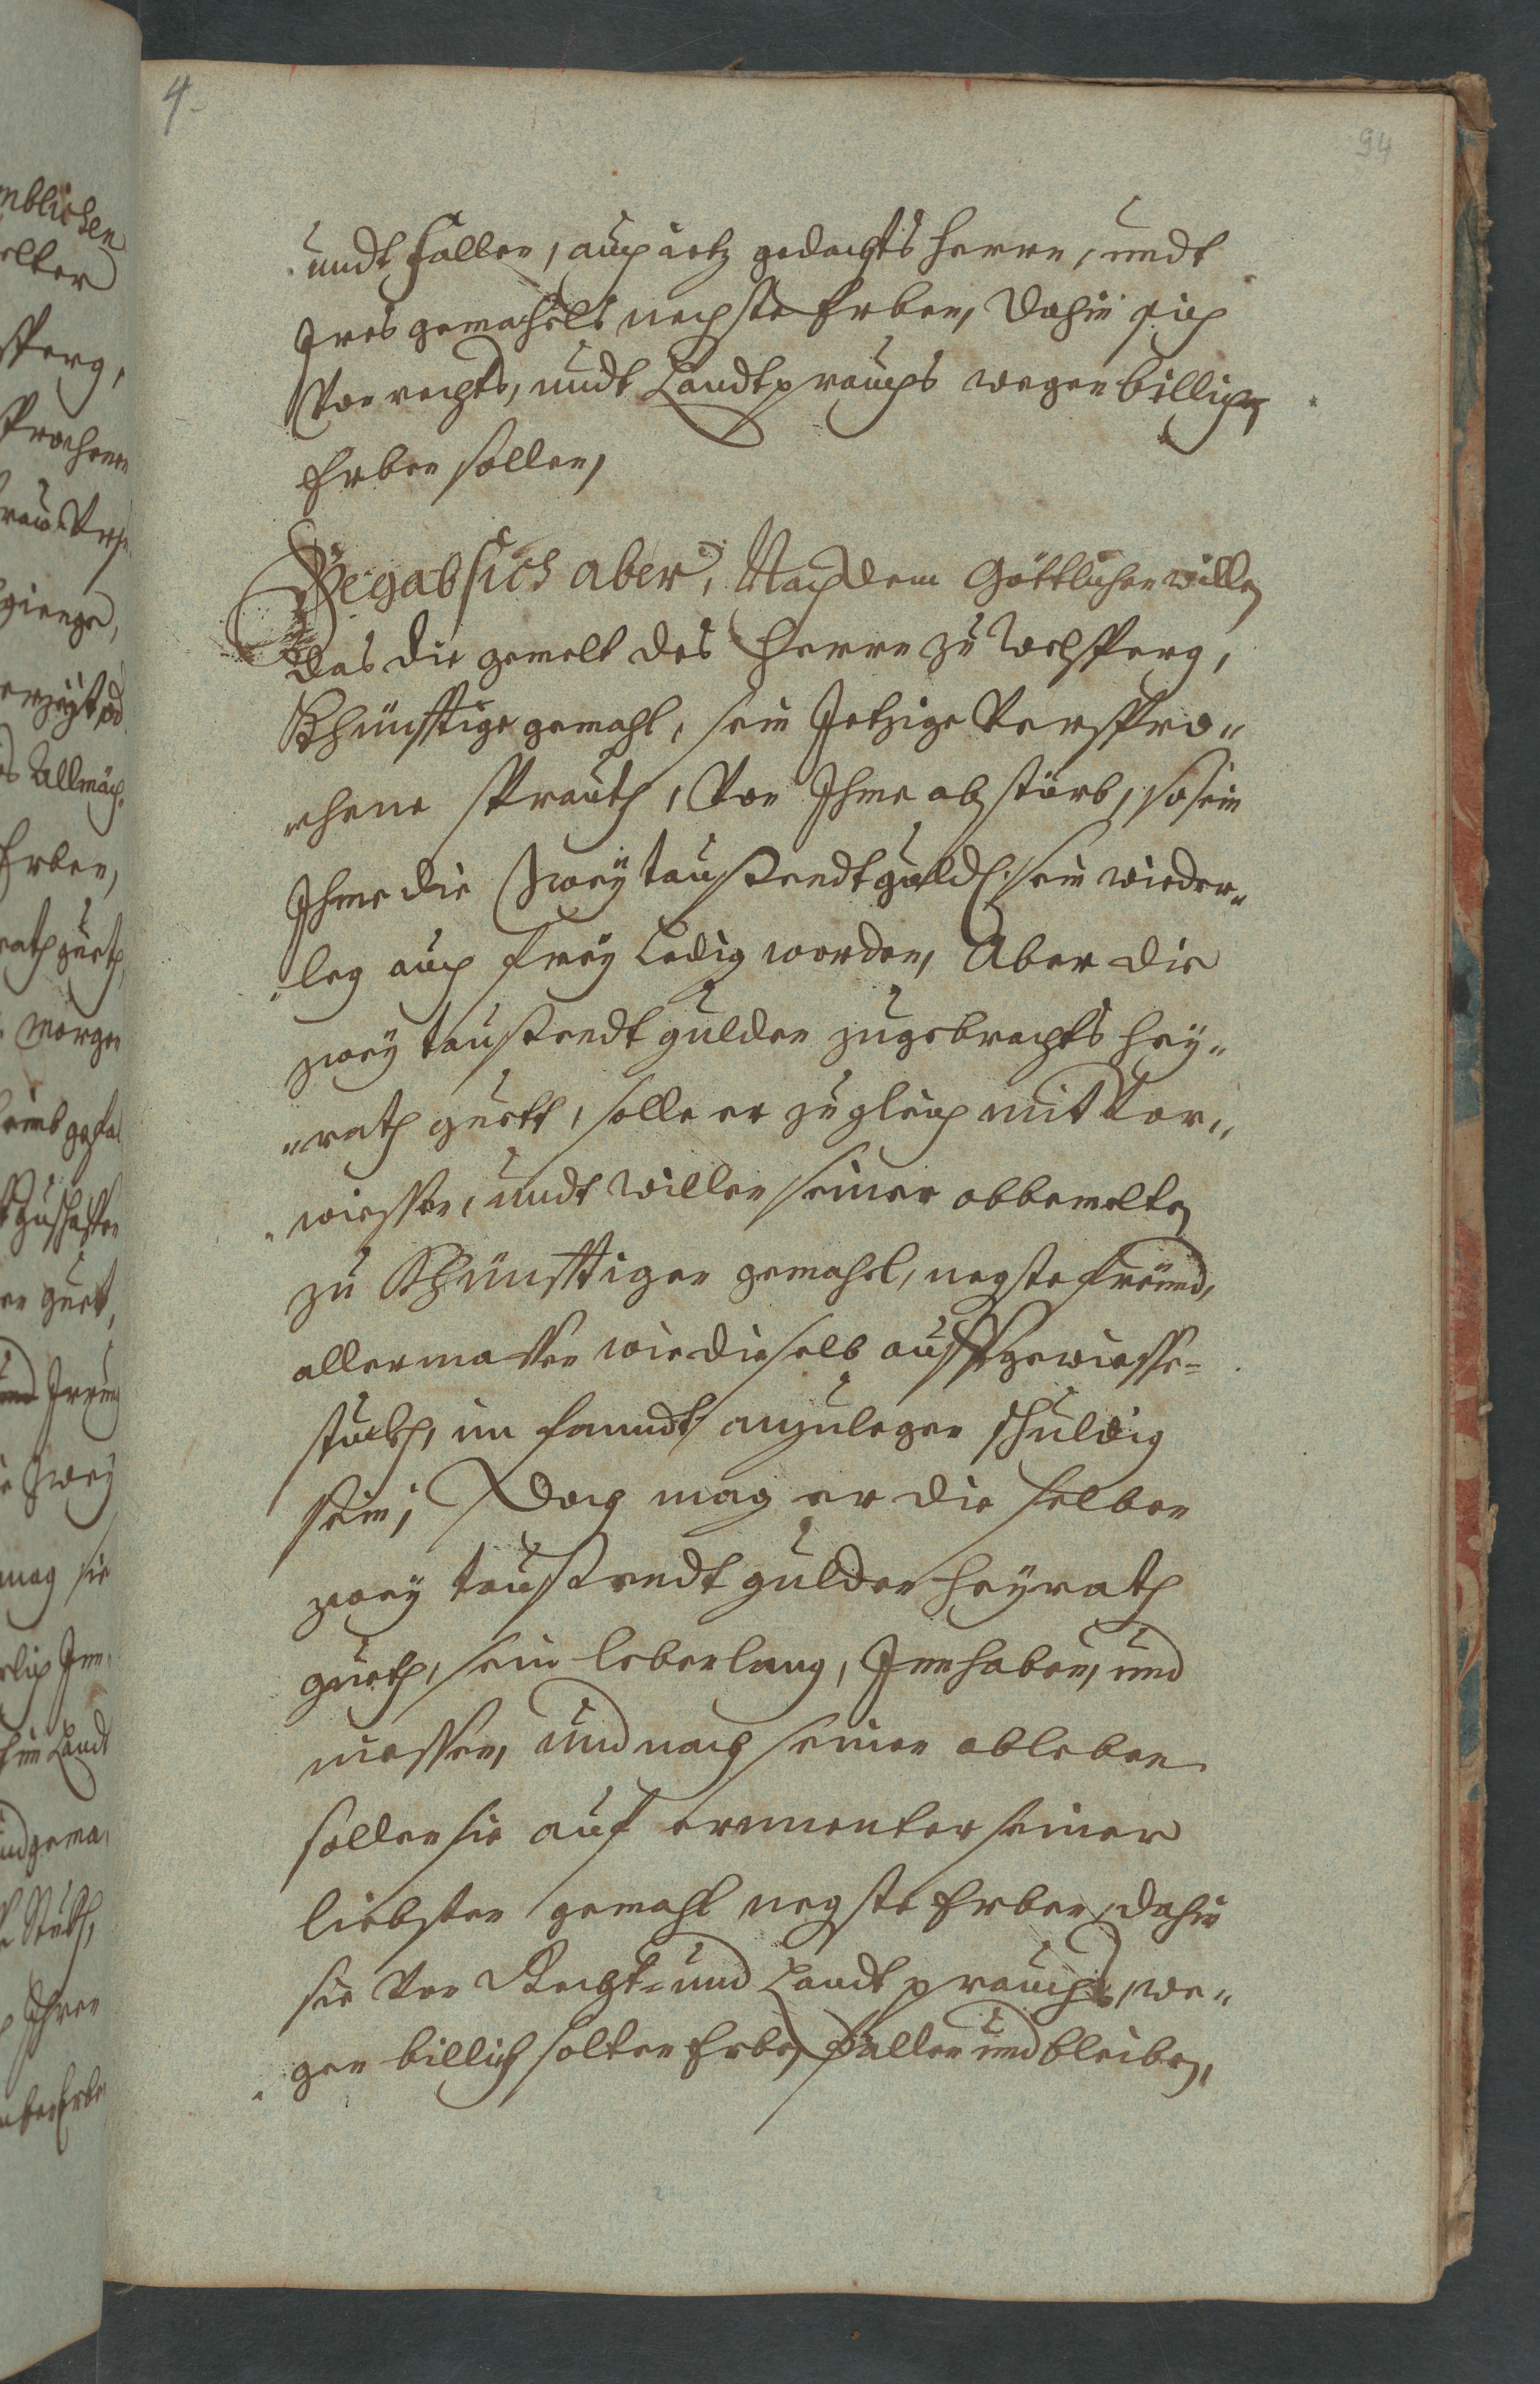 4.
94
undt Fallen, auch ietz gedachts herrn, undt
Ires gemahels nechste Erben, dahin sich
Von rechts, undt Landtprauchs wegen billichen
Erben sollen,
Begab sich aber, Nach dem Göttlichen willen
das die gemelt des Herrn zu Welsperg,
Khünfftige gemahl, sein Jetzige Verspro„
„chene Prauth, Von Ihme abstürb, so sein
Ihme die Zwey taußendt guld. sein wieder„
„leg auch frey Ledig worden, Aber die
zwey taußendt gulden zugebrachts hey„
„rath guett, solle er zugleich mit Vor„
„wissen, undt willen seiner obbemelten
zu Khünfftigen gemahel, negste freünd,
allermassen wie dieselb auff gewisse
stuckh, im Landt, anzulegen schuldig
sein; Doch mag er die selben
zwey taußendt gulden heyrath
gueth, sein lebenlang, Innhaben, und
niessen, und nach seinen ableben
sollen sie auf ernenter seiner
liebsten gemahl negste Erben, dahin
sie Von Recht- und Landtprauchs we„
„gen billich solten Erben, fallen und bleiben,